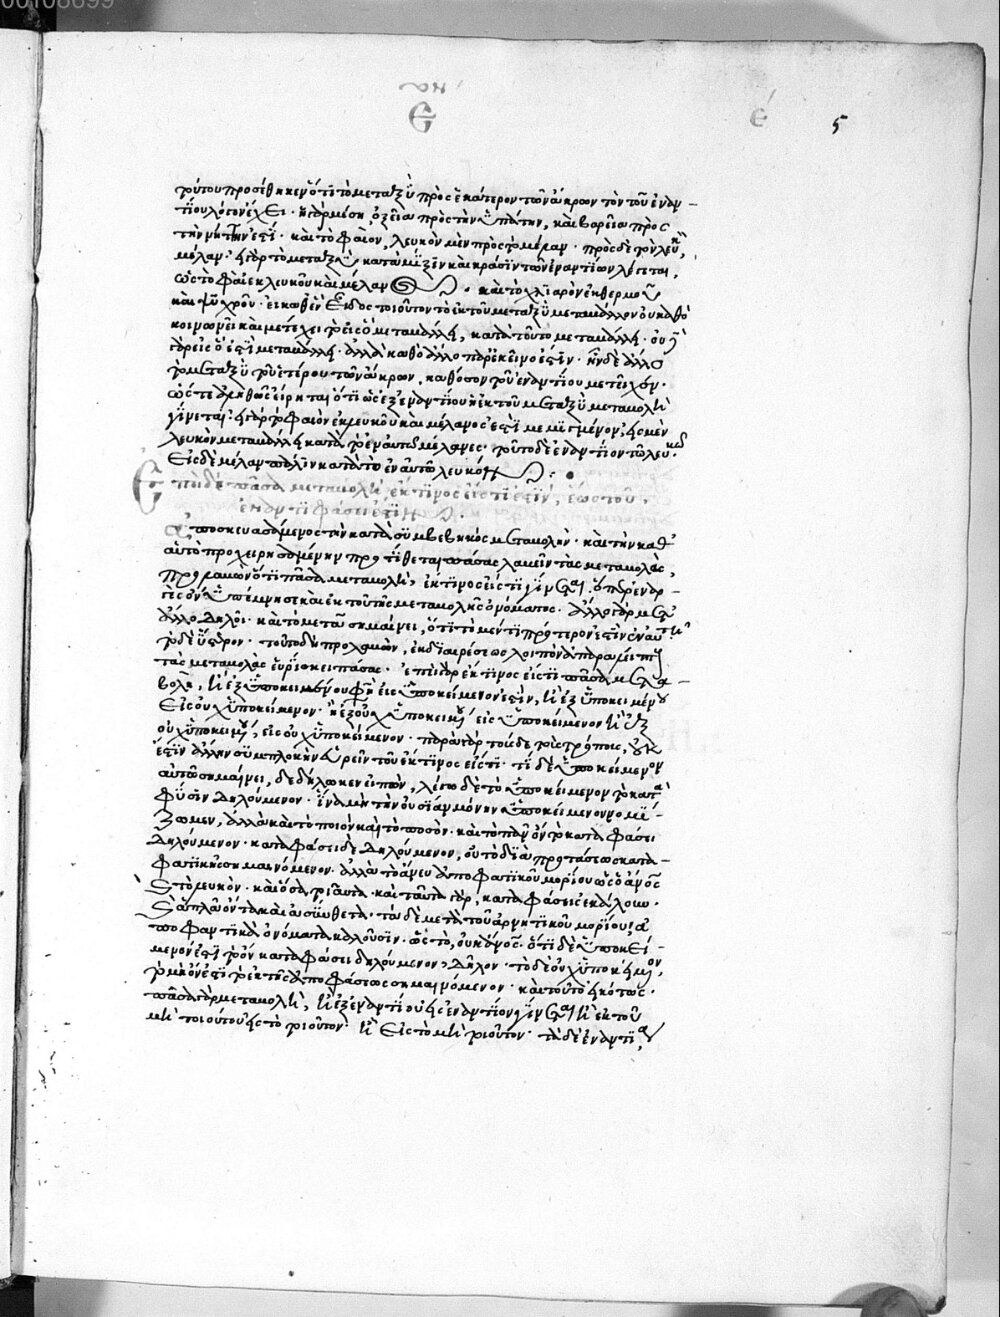 00108699
ε 5
τούτου προσέθηκεν ὅτι τὸ μεταξὺ πρὸς ἑκάτερον τῶν ἄκρων τὸν τοῦ ἐναν-
τίου λόγον ἔχει· ἡ γὰρ μέση, ὀξεῖα πρὸς τὴν ὑπάτην, καὶ βαρεῖα πρὸς
τὴν νήτην ἐστί· καὶ τὸ φαιὸν, λευκὸν μὲν πρὸς τὸ μέλαν· πρὸς δὲ τὸ λευκὸν,
μέλαν· ἐπεὶ γὰρ τὸ μεταξὺ κατὰ μίξιν καὶ κρᾶσιν τῶν ἐναντίων λέγεται,
ὡς τὸ φαιὸν ἐκ λευκοῦ καὶ μέλανος· καὶ τὸ χλιαρὸν ἐκ θερμοῦ
καὶ ψυχροῦ· εἰκὸς τὸ τοιοῦτον τὸ ἐκ τοῦ μεταξὺ μεταβάλλον οὐ καθὸ
κοινωνεῖ καὶ μετέχει τοῦ εἰς ὃ μεταβάλλει, κατὰ τοῦτο μεταβάλλει· οὐ
γὰρ εἰς ὅ ἐστι μεταβάλλει· ἀλλὰ καθὸ ἄλλο παρ' ἐκεῖνό ἐστιν·
τὸ μεταξὺ τοῦ ἑτέρου τῶν ἄκρων, καθόσον τοῦ ἐναντίου μετεῖχεν·
ὥστε ἀληθῶς εἴρηται ὅτι ὡς ἐξ ἐναντίου ἡ ἐκ τοῦ μεταξὺ μεταβολὴ
γίνεται· εἰ γὰρ τὸ φαιὸν ἐκ λευκοῦ καὶ μέλανός ἐστι μεμιγμένον, εἰς μὲν
λευκὸν μεταβάλλει κατὰ τὸ ἐν αὐτῷ μέλανος· τοῦτο δὲ ἐναντίον τῷ λευκῷ·
εἰς δὲ μέλαν πάλιν κατὰ τὸ ἐν αὐτῷ λευκόν
Ἐπεὶ δὲ πᾶσα μεταβολὴ, ἔκ τινος εἴς τί ἐστιν, ἕως τοῦ,
ἐναντία φάσει ἐστίν
Ἀποσκευασάμενος τὴν κατὰ συμβεβηκὸς μεταβολήν· καὶ τὴν καθ'
αὑτὸ προχειρησάμενην προστίθεται πάσας λαβεῖν τὰς μεταβολὰς,
προλαβὼν ὅτι πᾶσα μεταβολὴ, ἔκ τινος εἴς τι γίνεται·
ὑπέμνησε καὶ ἐκ τοῦ τῆς μεταβολῆς ὀνόματος· ἄλλο γὰρ μετ'
ἄλλο δηλοῖ· καὶ τὸ μετὰ σημαίνει, ὅτι τὸ μέν τι πρότερόν ἐστιν ἐν αὐτῇ
τὸ δὲ ὕστερον· τοῦτο δὴ προλαβὼν, ἐκ διαιρέσεως λοιπὸν
τὰς μεταβολὰς εὑρίσκει πάσας· ἐπεὶ γὰρ ἔκ τινος εἴς τι πᾶσα μετα-
βολὴ, ἢ ἐξ ὑποκειμένου φησὶν εἰς ὑποκείμενόν ἐστιν, ἢ ἐξ ὑποκειμένου
εἰς οὐχ ὑποκείμενον· ἢ ἐξ οὐχ ὑποκειμένου εἰς ὑποκείμενον ἢ ἐξ
οὐχ ὑποκειμένου, εἰς οὐχ ὑποκείμενον· παρὰ γὰρ τούσδε τοὺς τρόπους, οὐκ
ἔστιν ἄλλην συμπλοκὴν εὑρεῖν τοῦ ἔκ τινος εἴς τι· τί δὲ ὑποκείμενον
αὐτῷ σημαίνει, δεδήλωκεν εἰπὼν, λέγω δὲ τὸ ὑποκείμενον τὸ κατα
φύσιν δηλούμενον· ἵνα μὴ τὴν οὐσίαν μόνην ὑποκείμενον νομί-
ζωμεν, ἀλλὰ καὶ τὸ ποιὸν καὶ τὸ ποσόν· καὶ τὸ πᾶν ὂν τὸ καταφάσει
δηλούμενον· καταφάσει δὲ δηλούμενον, οὐ τὸ διὰ προτάσεως κατα-
φατικῆς σημαινόμενον· ἀλλὰ τὸ ἄνευ ἀποφατικοῦ μορίου ὡς ὁ ἄνθρωπος
τὸ λευκὸν· καὶ ὅσα τοιαῦτα· καὶ ταῦτα γὰρ, καταφάσεις ἐκάλουν·
ἁπλᾶ ὄντα καὶ ἀσύνθετα· τὰ δὲ μετὰ τοῦ ἀρνητικοῦ μορίου, ἀ-
ποφαντικὰ ὀνόματα καλοῦσιν· ὡς τὸ, οὐκ ἄνθρωπος· ὅτι δὲ ὑποκεί-
μενόν ἐστι τὸ ὂν καταφάσει δηλούμενον, δῆλον· τὸ δὲ οὐχ ὑποκείμενον,
τὸ μὴ ὄν ἐστι τὸ ἐκ τῆς ἀποφάσεως σημαινόμενον· καὶ τοῦτο εἰκότως·
πᾶσα γὰρ μεταβολὴ, ἢ ἐξ ἐναντίου εἰς ἐναντίον γίνεται ἢ ἐκ τοῦ
μὴ τοιούτου εἰς τὸ τοιοῦτον· ἢ εἰς τὸ μὴ τοιοῦτον· τὰ δὲ ἐναντία